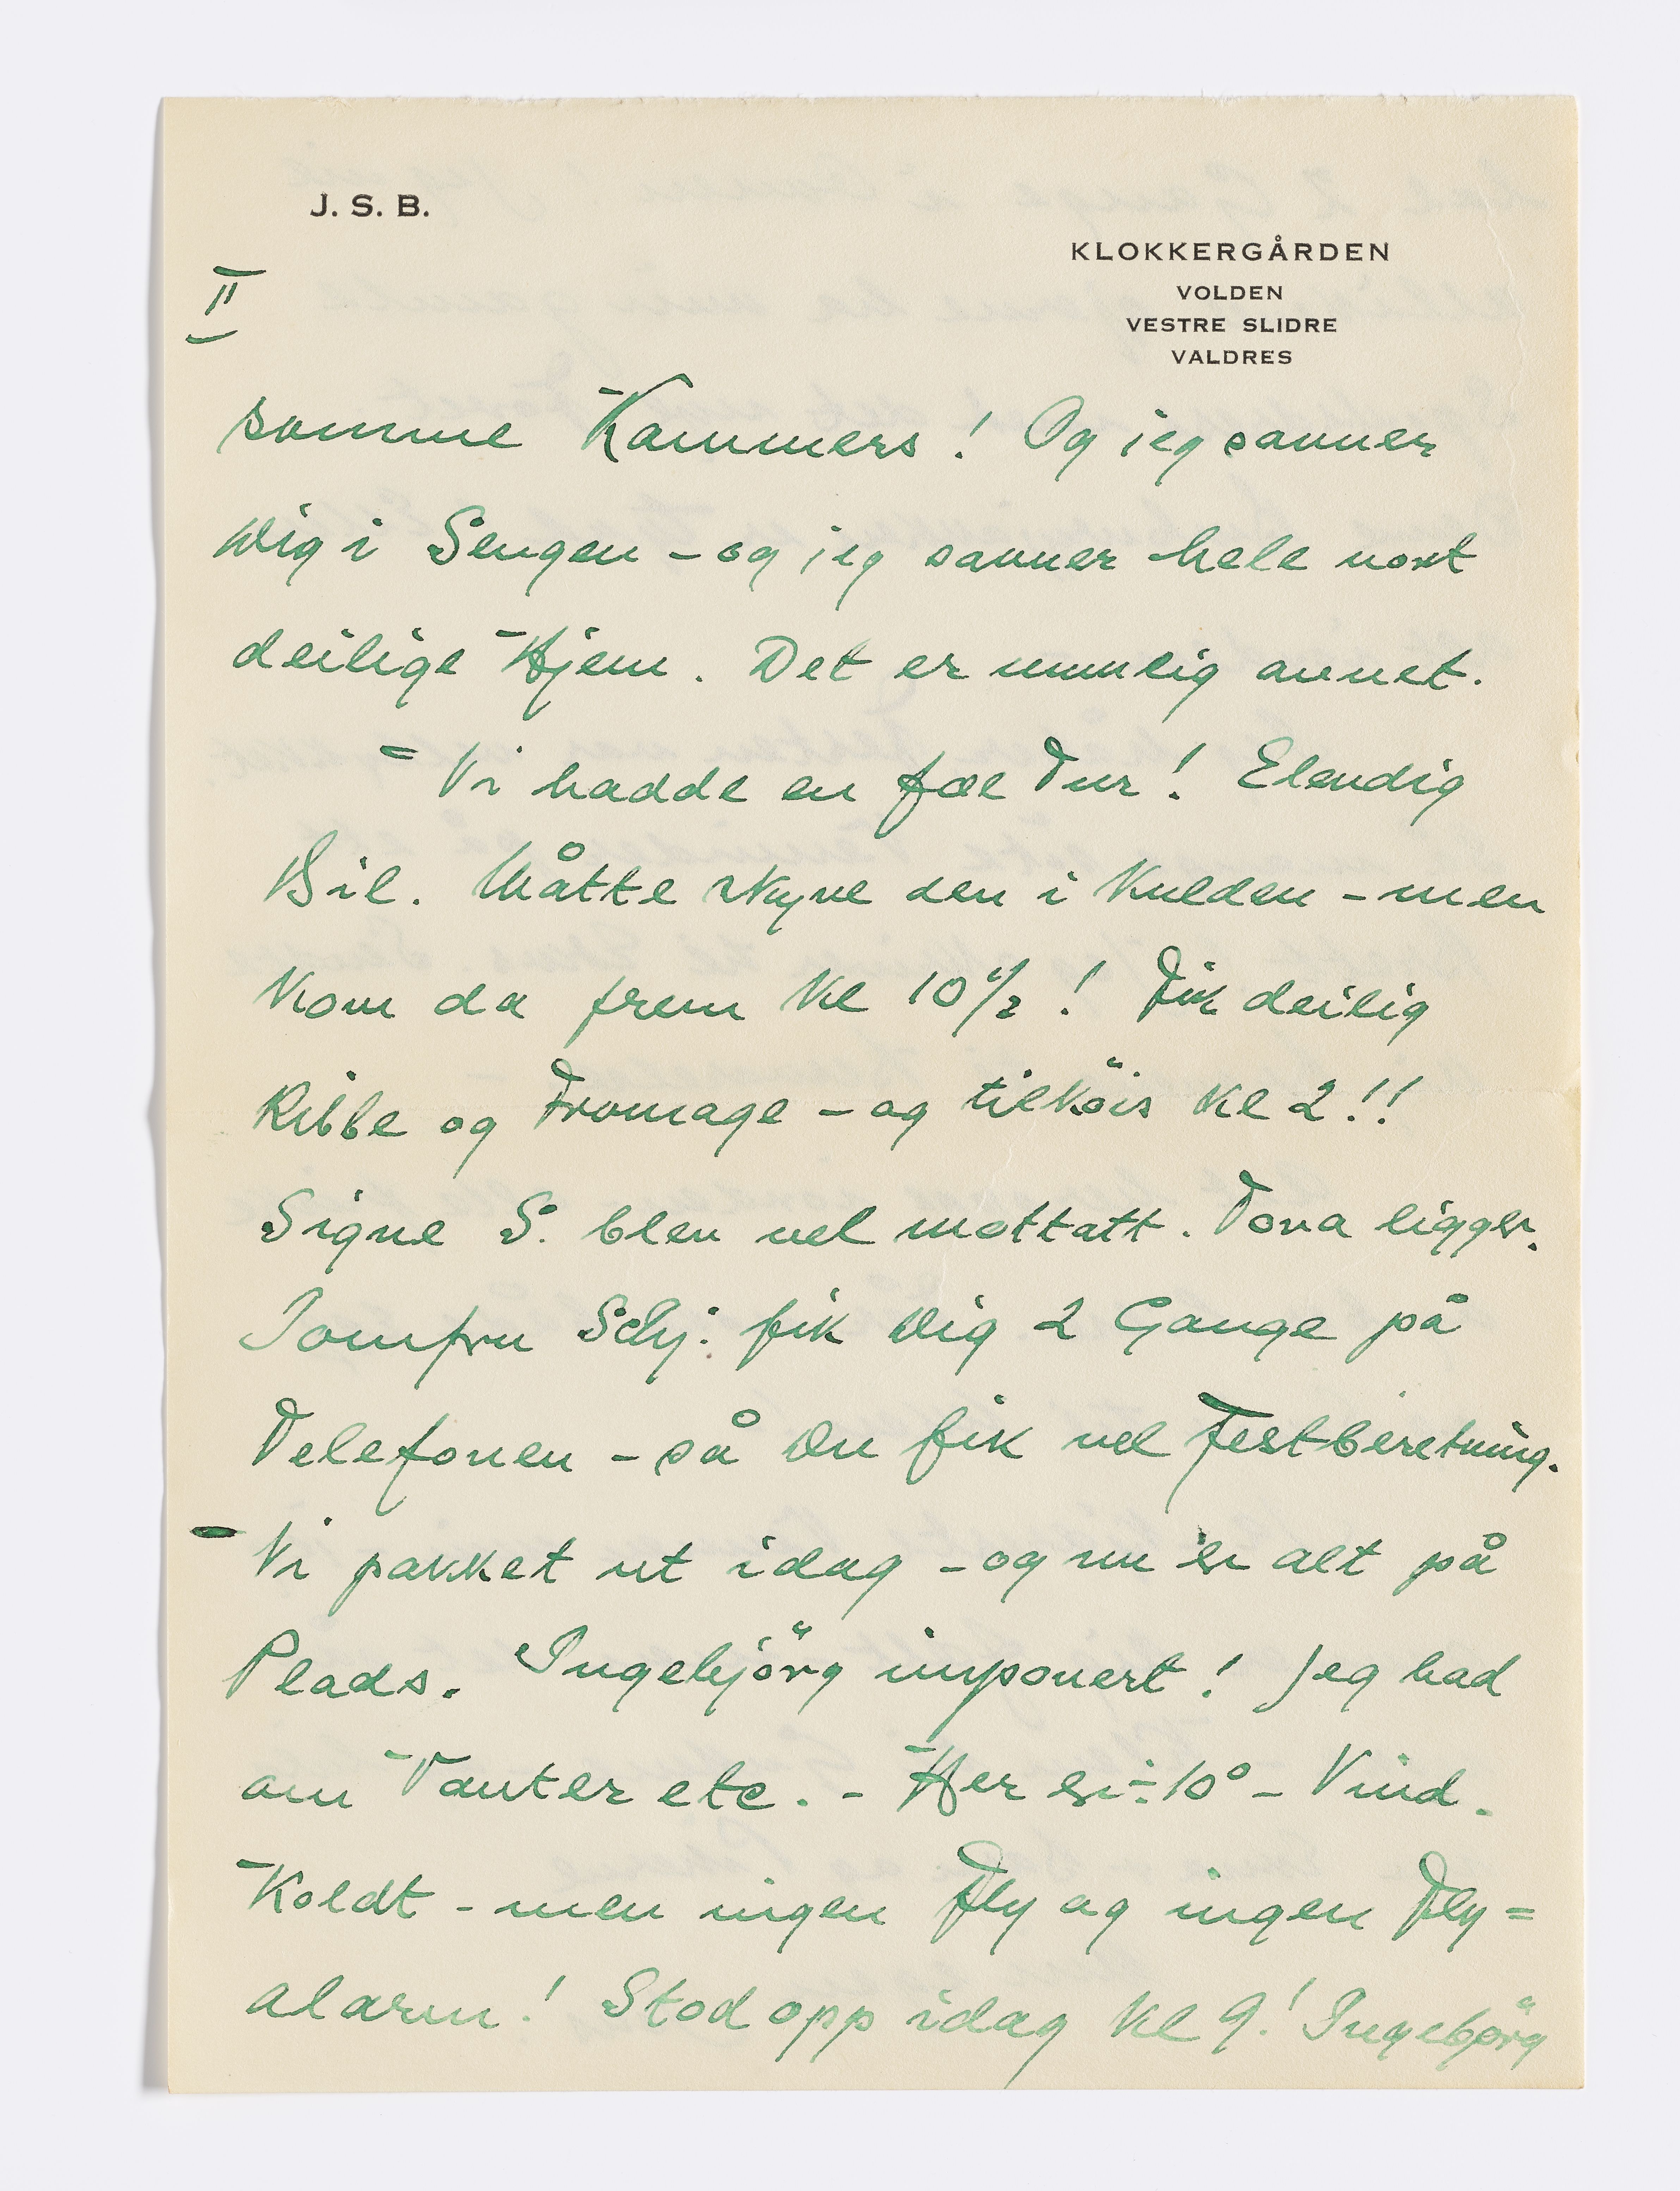 J. S. B.
KLOKKERGÅRDEN
VOLDEN
VESTRE SLIDRE
VALDRES
II
samme Kammers! Og jeg savner
Dig i Sengen – og jeg savner hele vort
deilige Hjem. Det er umulig annet.
= Vi hadde en fæl Tur! Elendig
Bil. Måtte skyve den i Kulden – men
kom da frem Kl 10 1/2! Fik deilig
Ribbe og Fromage – og tilköis Kl 2!!
Signe S. blev vel mottatt. Tova ligger.
Jomfru Schj: fik Dig 2 Gange på
Telefonen – så Du fik vel Festberetning.
– Vi pakket ut idag – og nu er alt på
Plads. Ingebjörg imponert! Jeg bad
om Vanter etc. – Her er ÷ 10° – Vind.
Koldt – men ingen Fly og ingen Fly=
alarm! Stod opp idag Kl 9! Ingebjörg